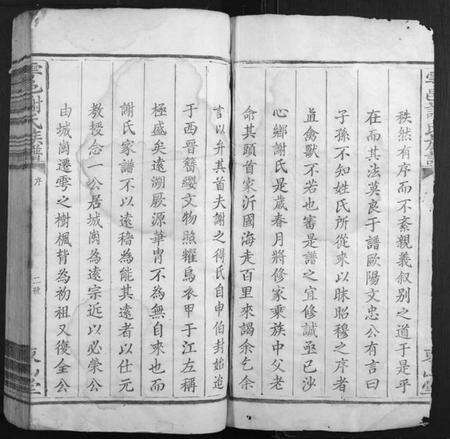 秩然有序而不紊親義叙别之道于是乎
在而其法莫良于譜歐陽文忠公有言曰
子孫不知姓氏所從來以昧昭穆之序者
禽獸不若也審是譜之宜修誠亟已沙
心鄉謝氏是歲春月將修家乗族中父老
命其頭首家沂國海走百里來謁余乞余
言以弁其首夫謝之得氏自申伯封始迨
于西晉簪纓文物照耀烏衣甲于江左稱
極盛矣遠溯厥源華胄不為無自來也而
謝氏家譜不以遠稽為能其遠者以仕元
教授念一公居城崗為遠宗近以必榮公
由城崗遷雩之樹楓背為初祖又復金公
序
東山堂